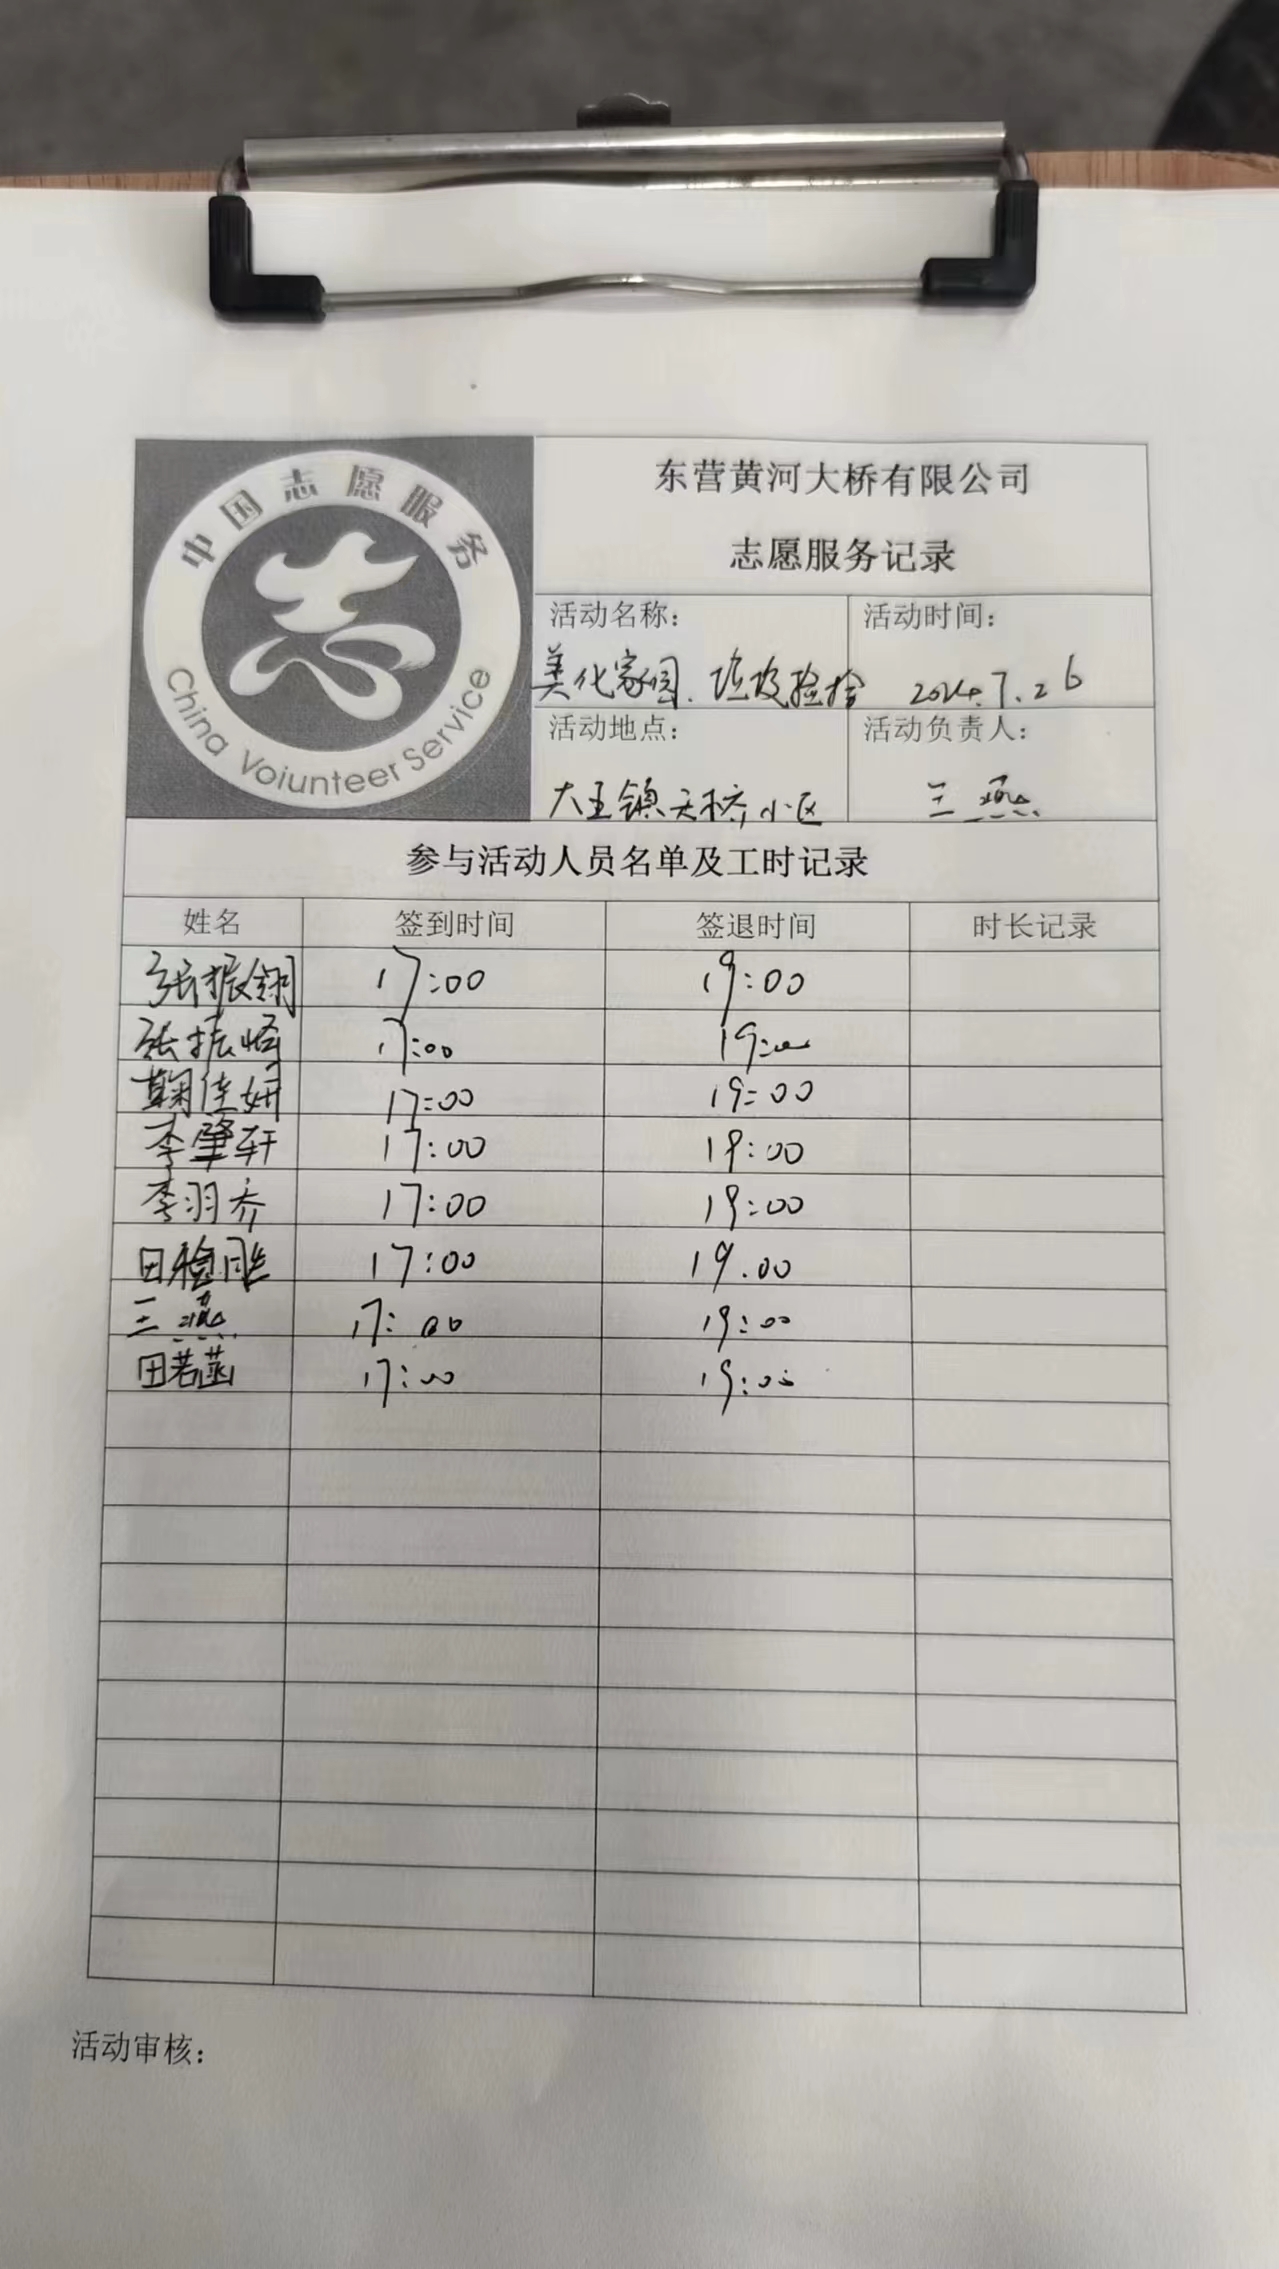 中国志愿服务
China Voiunteer Service
东营黄河大桥有限公司
志愿服务记录
活动名称： 活动时间：
美化家园、垃圾捡拾 2024.7.26
活动地点： 活动负责人：
大王镇天桥小区 王燕
参与活动人员名单及工时记录
姓名 签到时间 签退时间 时长记录
张振翎 17:00 19:00
张振恪 17:00 19:00
鞠佳妍 17:00 19:00
李肇轩 17:00 19:00
李羽乔 17:00 19:00
17:00 19.00
王燕 17:00 19:00
田若菡 17:00 19:00
活动审核：